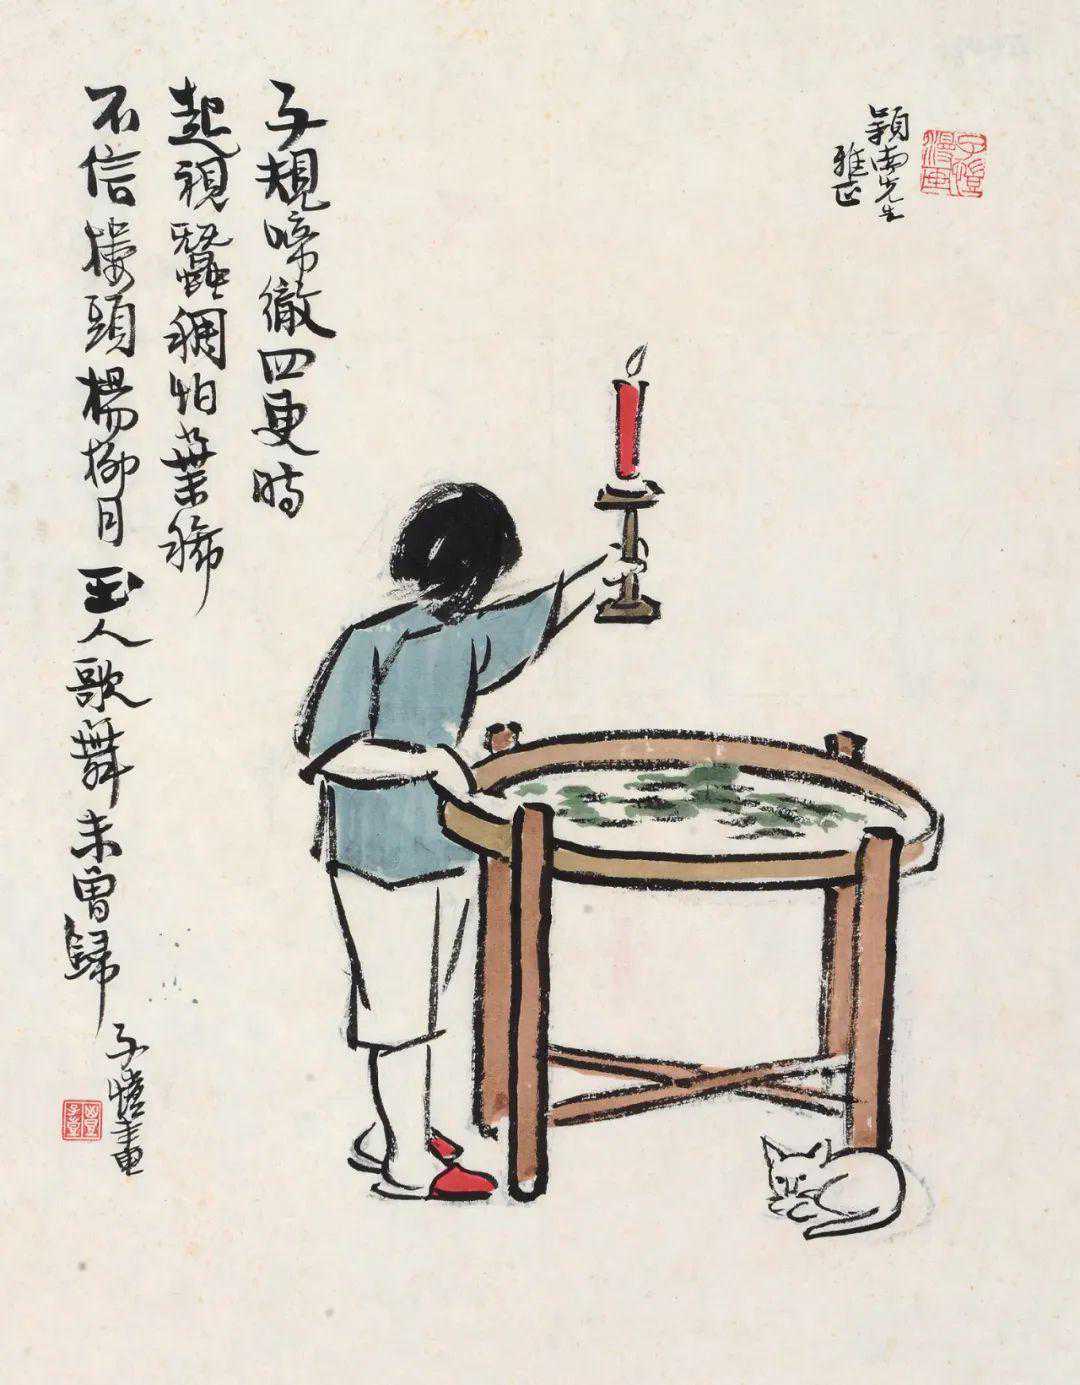 子愷
漫畫
穎南先生
雅正
子規啼徹四更時
起視蠶稠怕葉稀
不信樓頭楊柳月玉人歌舞未曾歸
子愷畫